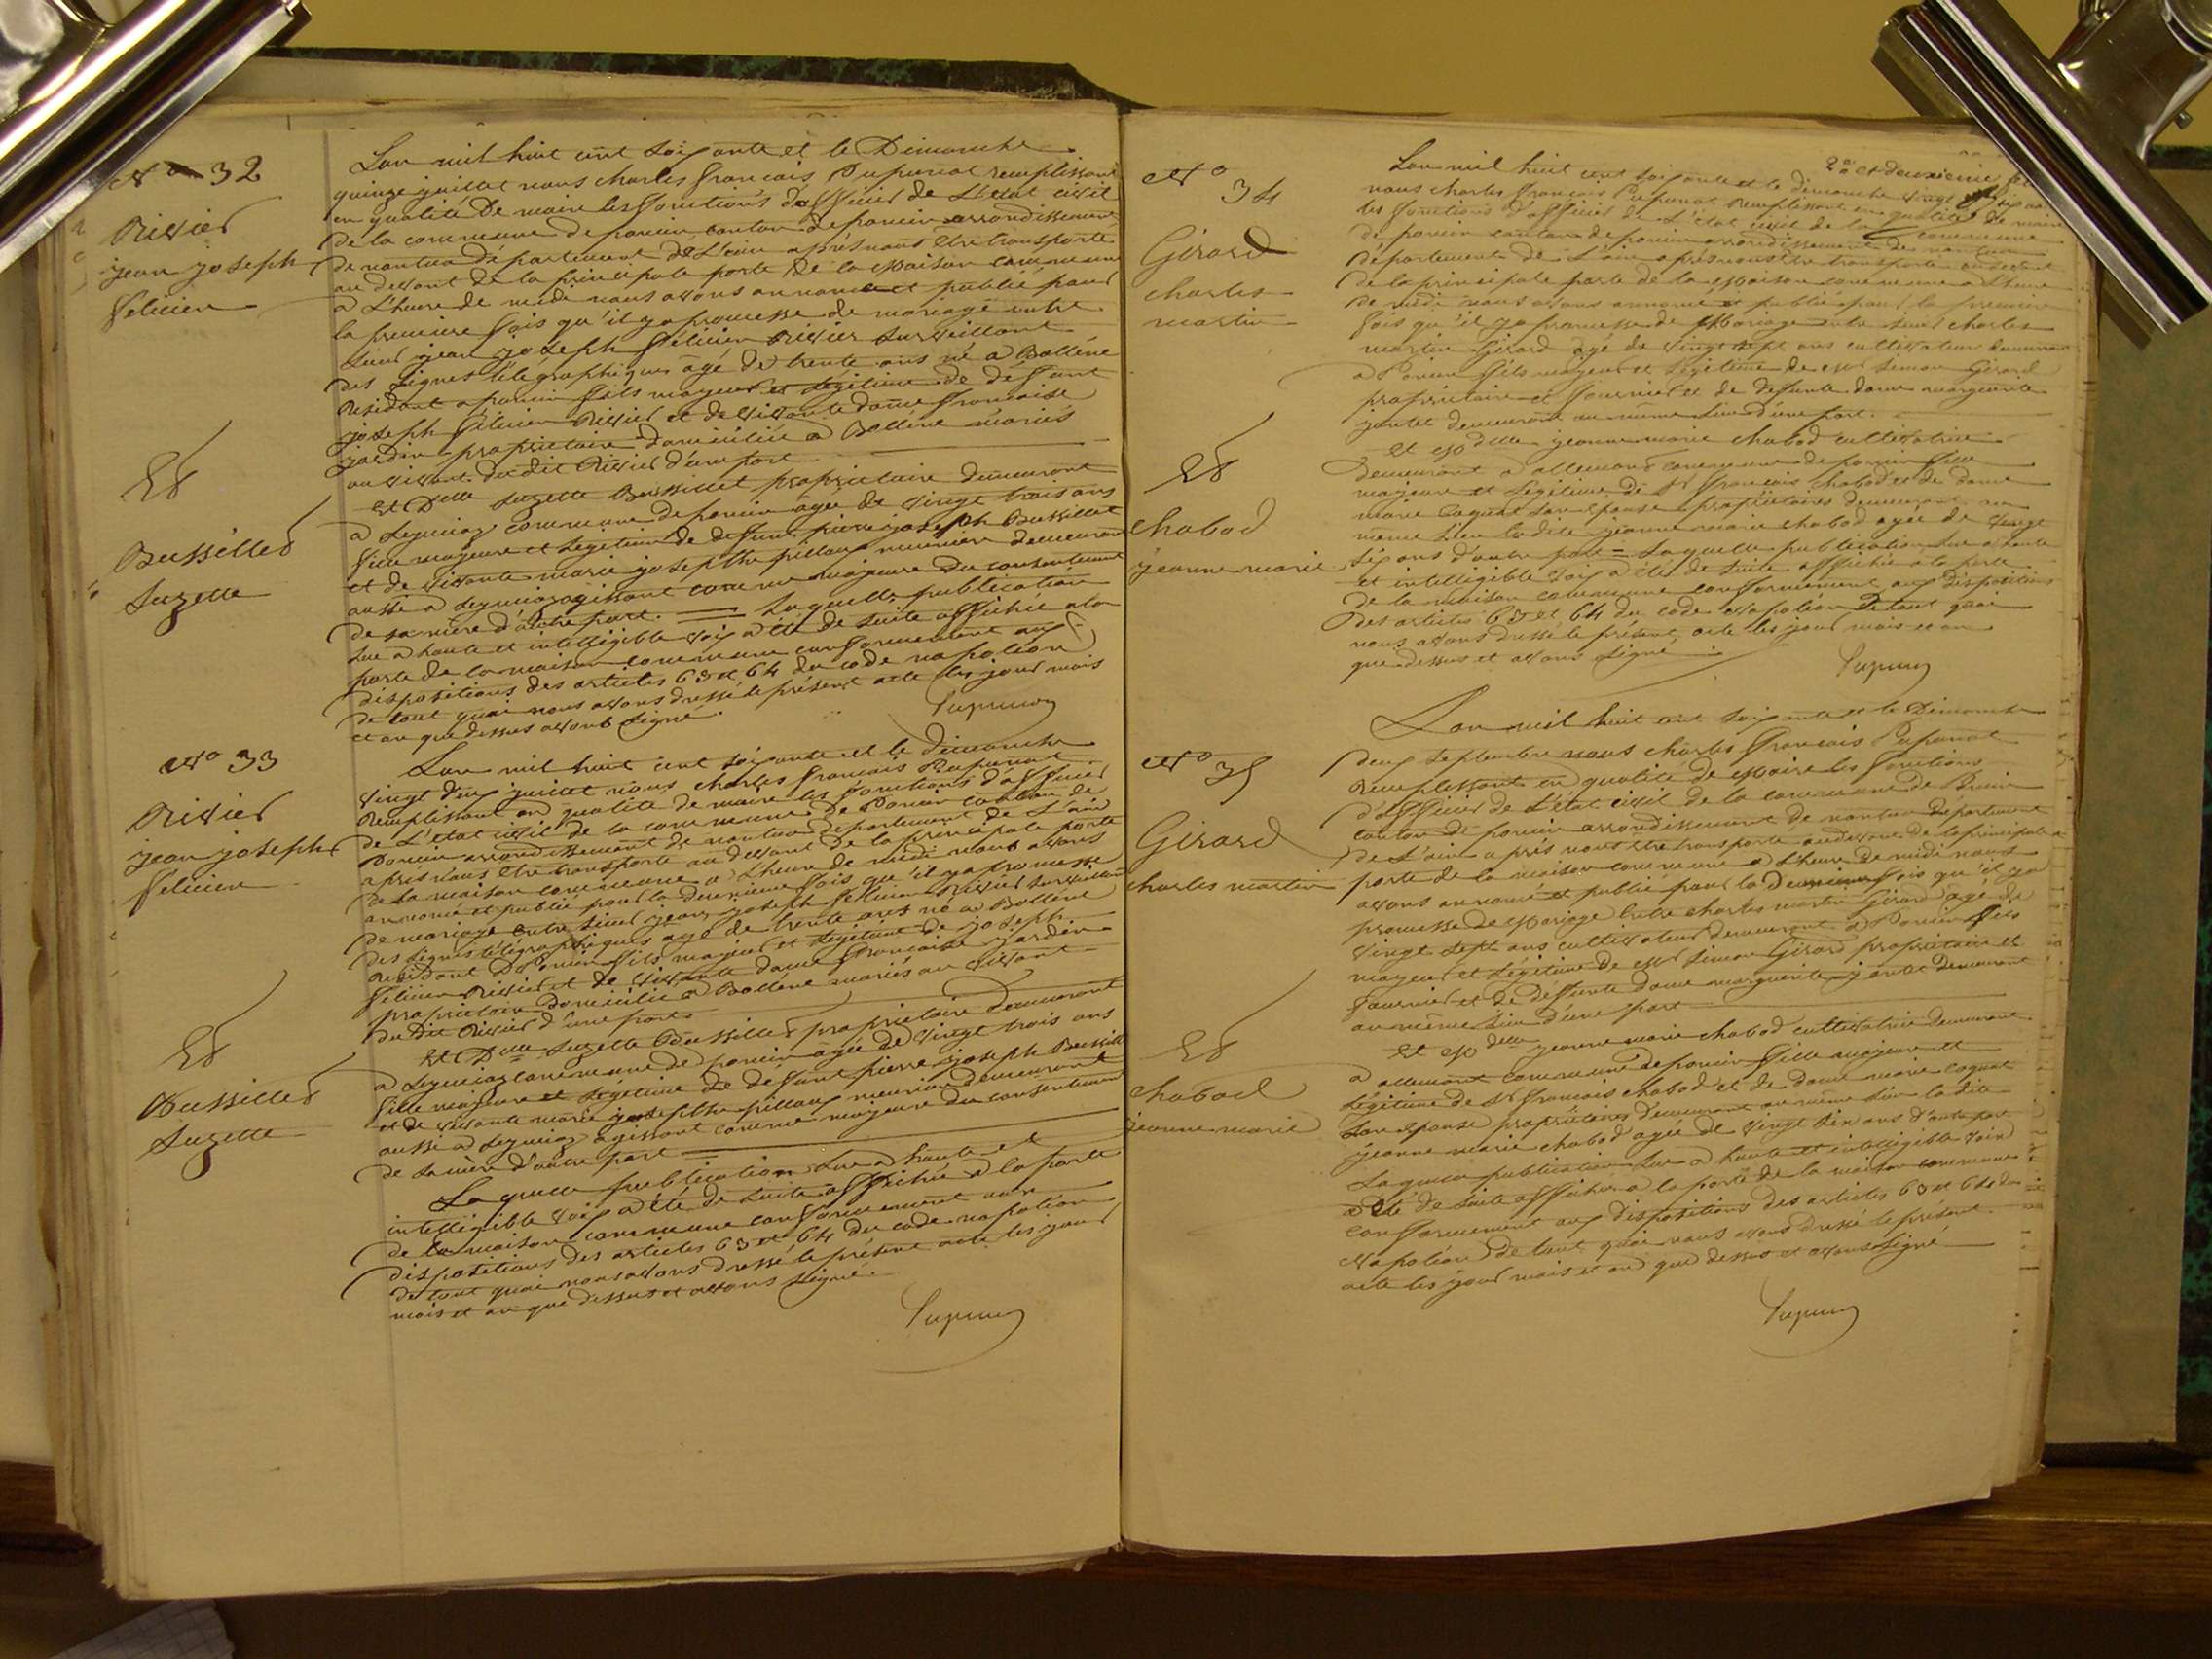 N° 32
Rivier
jean joseph
felicien
Et
Bussillet
Suzette
Lan mil huit cent soixante et le Dimanche
quinze juillet nous charles francois Pupunat remplissant
en qualité De maire les fonctions d'officier de L'état civil
de la commune de poncin canton de poncin arrondissement
de nantua département de L'ain après nous être transporté
au devant de la principale porte de la Maison commune
a L'heure de midi nous avons annoncé et publié pour
la premiere fois qu'il y a promesse de mariage entre
sieur jean joseph félicien Rivier surveillant
des Lignes télégraphiques agé de trente ans né a Bolléne
Résidant a poncin fils majeur et légitime de défunt
joseph félicien Rivier et de vivante dame francoise
jardin propriétaire domiciliée a Bolléne mariés
au vivant du dit Rivier d'une part
et Dlle Suzette Bussillet propriétaire demeurant
a Leymiaz commune de poncin agée de vingt trois ans
fille majeure et légitime de défunt pierre joseph Bussillet
et de vivante marie josephte pillaux meunière demeurant
aussi a Leymiaz agissant comme majeure du consentement
de sa mère d'autre part. = Laquelle publication
lue a haute et intelligible voix a été de suite affichée a la
porte de la maison commune conformement aux
dispositions des articles 63 et 64 du code napoléon
de tout quoi nous avons dressé le présent acte les jour mois
et an que dessus avons signé.
Pupunat
N° 33
Rivier
jean joseph
felicien
Et
Bussillet
Suzette
Lan mil huit cent soixante et le dimanche
vingt deux juillet nous charles francois Pupunat
Remplissant en qualité de maire les fonctions d'officier
de L'état civil de la commune de Poncin canton de
Poncin arrondissement de nantua departement de L'ain
apres nous être transporté au devant de la principale porte
de la maison commune a L'heure de midi nous avons
annoncé et publié pour la deuxieme fois qu'il y a promesse
de mariage entre sieur jean joseph felicien Rivier surveillant
des lignes télégraphiques agé de trente ans né a Bolléne
Résidant a Poncin fils majeur et légitime de joseph
félicien Rivier et de vivante dame francoise jardin
propriétaire domiciliée a Bollene mariés au vivant
du dit Rivier d'une part
Et Dlle Suzette Bussillet propriétaire demeurant
a Leymiaz commune de poncin agée de vingt trois ans
fille majeure et légitime de défunt pierre joseph Bussillet
et de vivante marie josephte pillaux meunière demeurant
aussi a Leymiaz agissant comme majeure du consentement
de sa mère d'autre part
Laquelle publication lue a haute et
intelligible voix a été de suite affichée a la porte
de la maison commune conformement aux
dispositions des articles 63 et 64 du code napoléon
de tout quoi nous avons dressé le présent acte les jour
mois et an que dessus et avons signé.
Pupunat
N° 34
Girard
charles
martin
Et
chabod
jeanne marie
Lan mil huit cent soixante et le dimanche vingt
nous charles francois Pupunat Remplissant en qualité de maire
les fonctions d'officier de L'état civil de la commune
de poncin canton de poncin arrondissement de nantua
département de L'ain après nous être transporté au devant
de la principale porte de la Maison commune a L'heure
de midi nous avons annoncé et publié pour la premiere
fois qu'il y a promesse de Mariage entre sieur charles
martin Girard agé de vingt sept ans cultivateur demeurant
a Poncin fils majeur et légitime de Mr Simon Girard
propriétaire et fournier et de defunte dame marguerite
demeurant au même lieu d'une part.
et Mdlle jeanne marie chabod cultivatrice
demeurant a allement commune de poncin fille
majeure et légitime de Sr francois chabod et de dame
marie coquat son épouse propriétaires demeurant au
meme lieu ladite jeanne marie chabod agée de vingt
six ans d'autre part = Laquelle publication lue a haute
et intelligible voix a été de suite affichée a la porte
de la maison commune conformement aux dispositions
des articles 63 et 64 du code napoléon De tout quoi
nous avons dressé le présent acte les jour mois et an
que dessus et avons signé
Pupunat
N° 35
Girard
charles martin
Et
chabod
jeanne marie
Lan mil huit cent soixante et le Dimanche
deux septembre nous charles francois Pupunat
Remplissant en qualité de Maire les fonctions
d'officier de L'état civil de la commune de Poncin
canton de poncin arrondissement de nantua département
de L'ain après nous être transporté au devant de la principale
porte de la maison commune a L'heure de midi nous
avons annoncé et publié pour la Deuxieme fois qu'il y a
promesse de Mariage Entre charles martin Girard agé de
vingt sept ans cultivateur demeurant a Poncin fils
majeur et légitime de Mr Simon Girard propriétaire et
fournier et de défunte dame marguerite demeurant
au même lieu d'une part
Et Mdlle jeanne marie chabod cultivatrice demeurant
a allement commune de poncin fille majeure et
légitime de Sr francois chabod et de dame marie coquat
son épouse propriétaires demeurant au même lieu la dite
jeanne marie chabod agée de vingt six ans d'autre part
Laquelle publication lue a haute et intelligible voix
a été de suite affichée a la porte de la maison commune
conformement aux dispositions des articles 63 et 64 du
Napoléon De tout quoi nous avons dressé le présent
acte les jour mois et an que dessus et avons signé
Pupunat